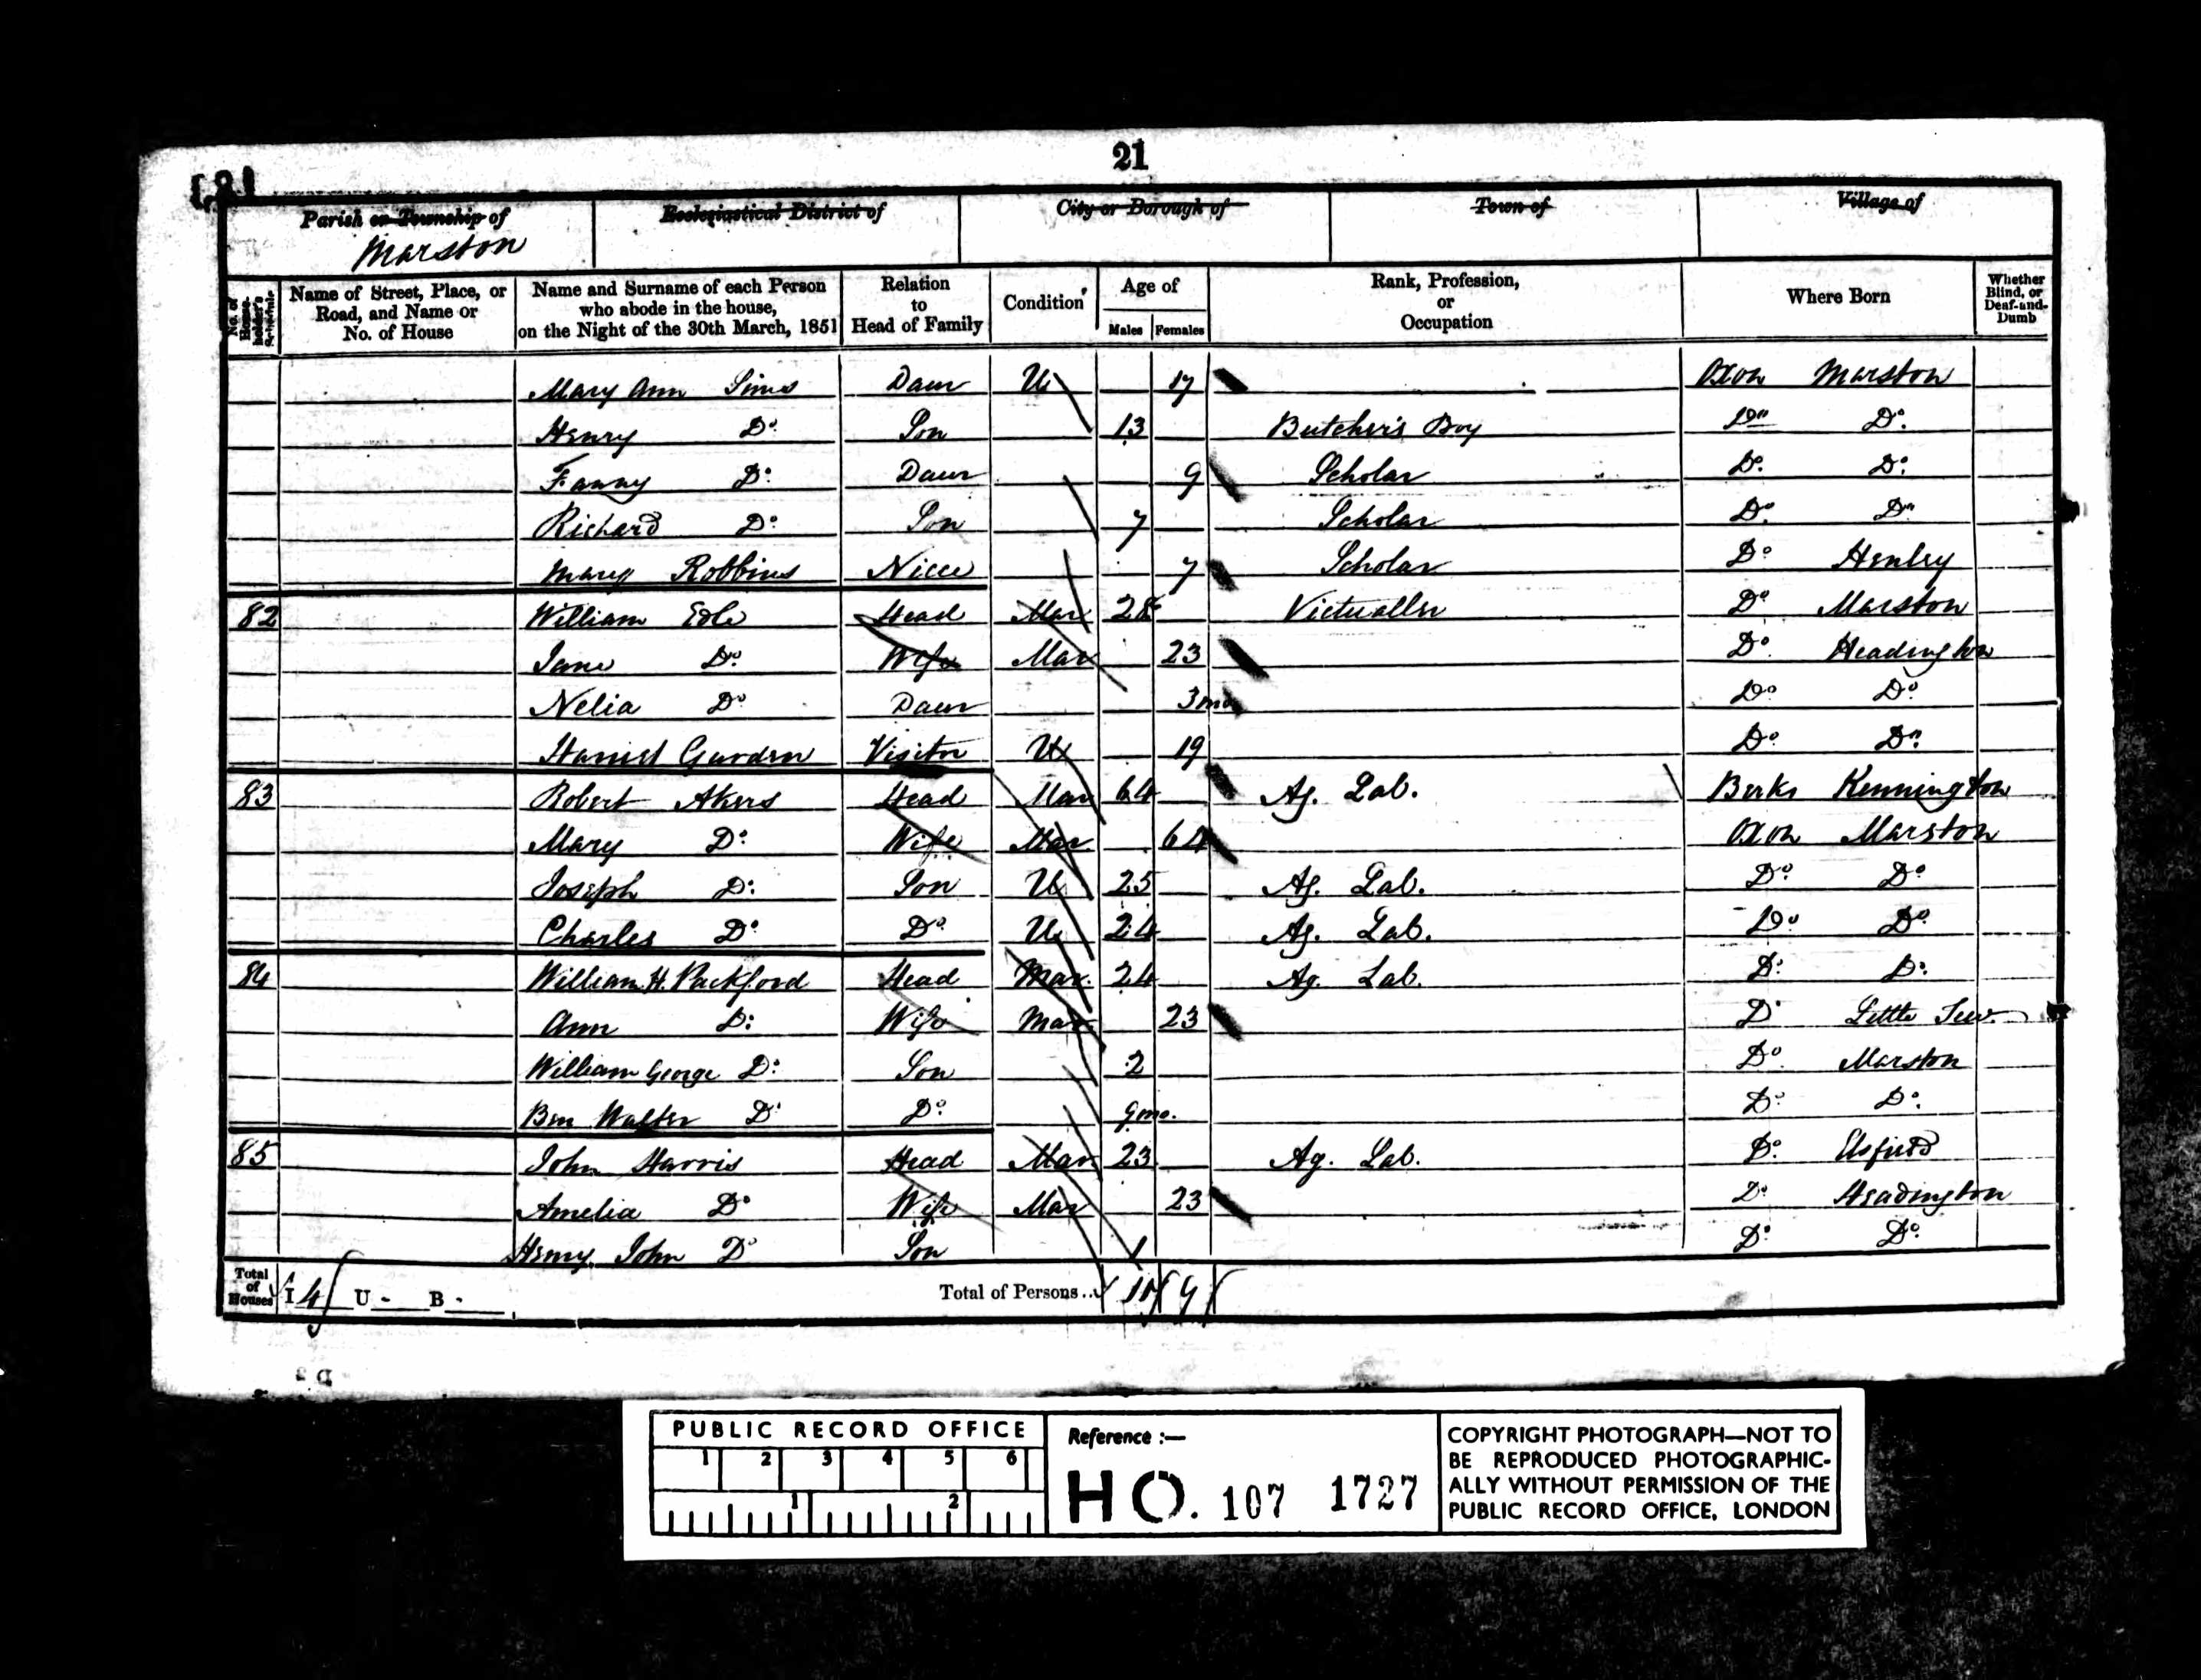 21
Parish or Township of
Marston
Ecclesiastical District of
City or Borough of
Town of
Village of
No. of House-holder's Schedule
Name of Street, Place, or Road, and Name or No. of House
Name and Surname of each Person who abode in the house, on the Night of the 30th March, 1851
Relation to Head of Family
Condition
Age of
Males Females
Rank, Profession, or Occupation
Where Born
Whether Blind, or Deaf-and-Dumb
Mary Ann Sims Daur U 17 Oxon Marston
Henry Do Son 13 Butcher's Boy Do Do
Fanny Do Daur 9 Scholar Do Do
Richard Do Son 7 Scholar Do Do
Mary Robbins Niece 7 Scholar Do Henley
82 William Edle Head Mar 28 Victualler Do Marston
Jane Do Wife Mar 23 Do Headington
Nelia Do Daur 3 mo Do Do
Harriet Gurden Visitor U 19 Do Do
83 Robert Akers Head Mar 64 Ag. Lab. Berks Kennington
Mary Do Wife Mar 64 Oxon Marston
Joseph Do Son U 25 Ag. Lab. Do Do
Charles Do Do U 24 Ag. Lab. Do Do
84 William H. Packford Head Mar. 24 Ag. Lab. Do Do
Ann Do Wife Mar 23 Do Little Tew
William George Do Son 2 Do Marston
Ben Walter Do Do 9 mo. Do Do
85 John Harris Head Mar 23 Ag. Lab. Do Elsfield
Amelia Do Wife Mar 23 Do Headington
Henry John Do Son 1 Do Do
Total of Houses I 4 U - B - Total of Persons .. 11 9
PUBLIC RECORD OFFICE
1 2 3 4 5 6
1 2
Reference :—
HO. 107 1727
COPYRIGHT PHOTOGRAPH—NOT TO
BE REPRODUCED PHOTOGRAPHIC-
ALLY WITHOUT PERMISSION OF THE
PUBLIC RECORD OFFICE, LONDON